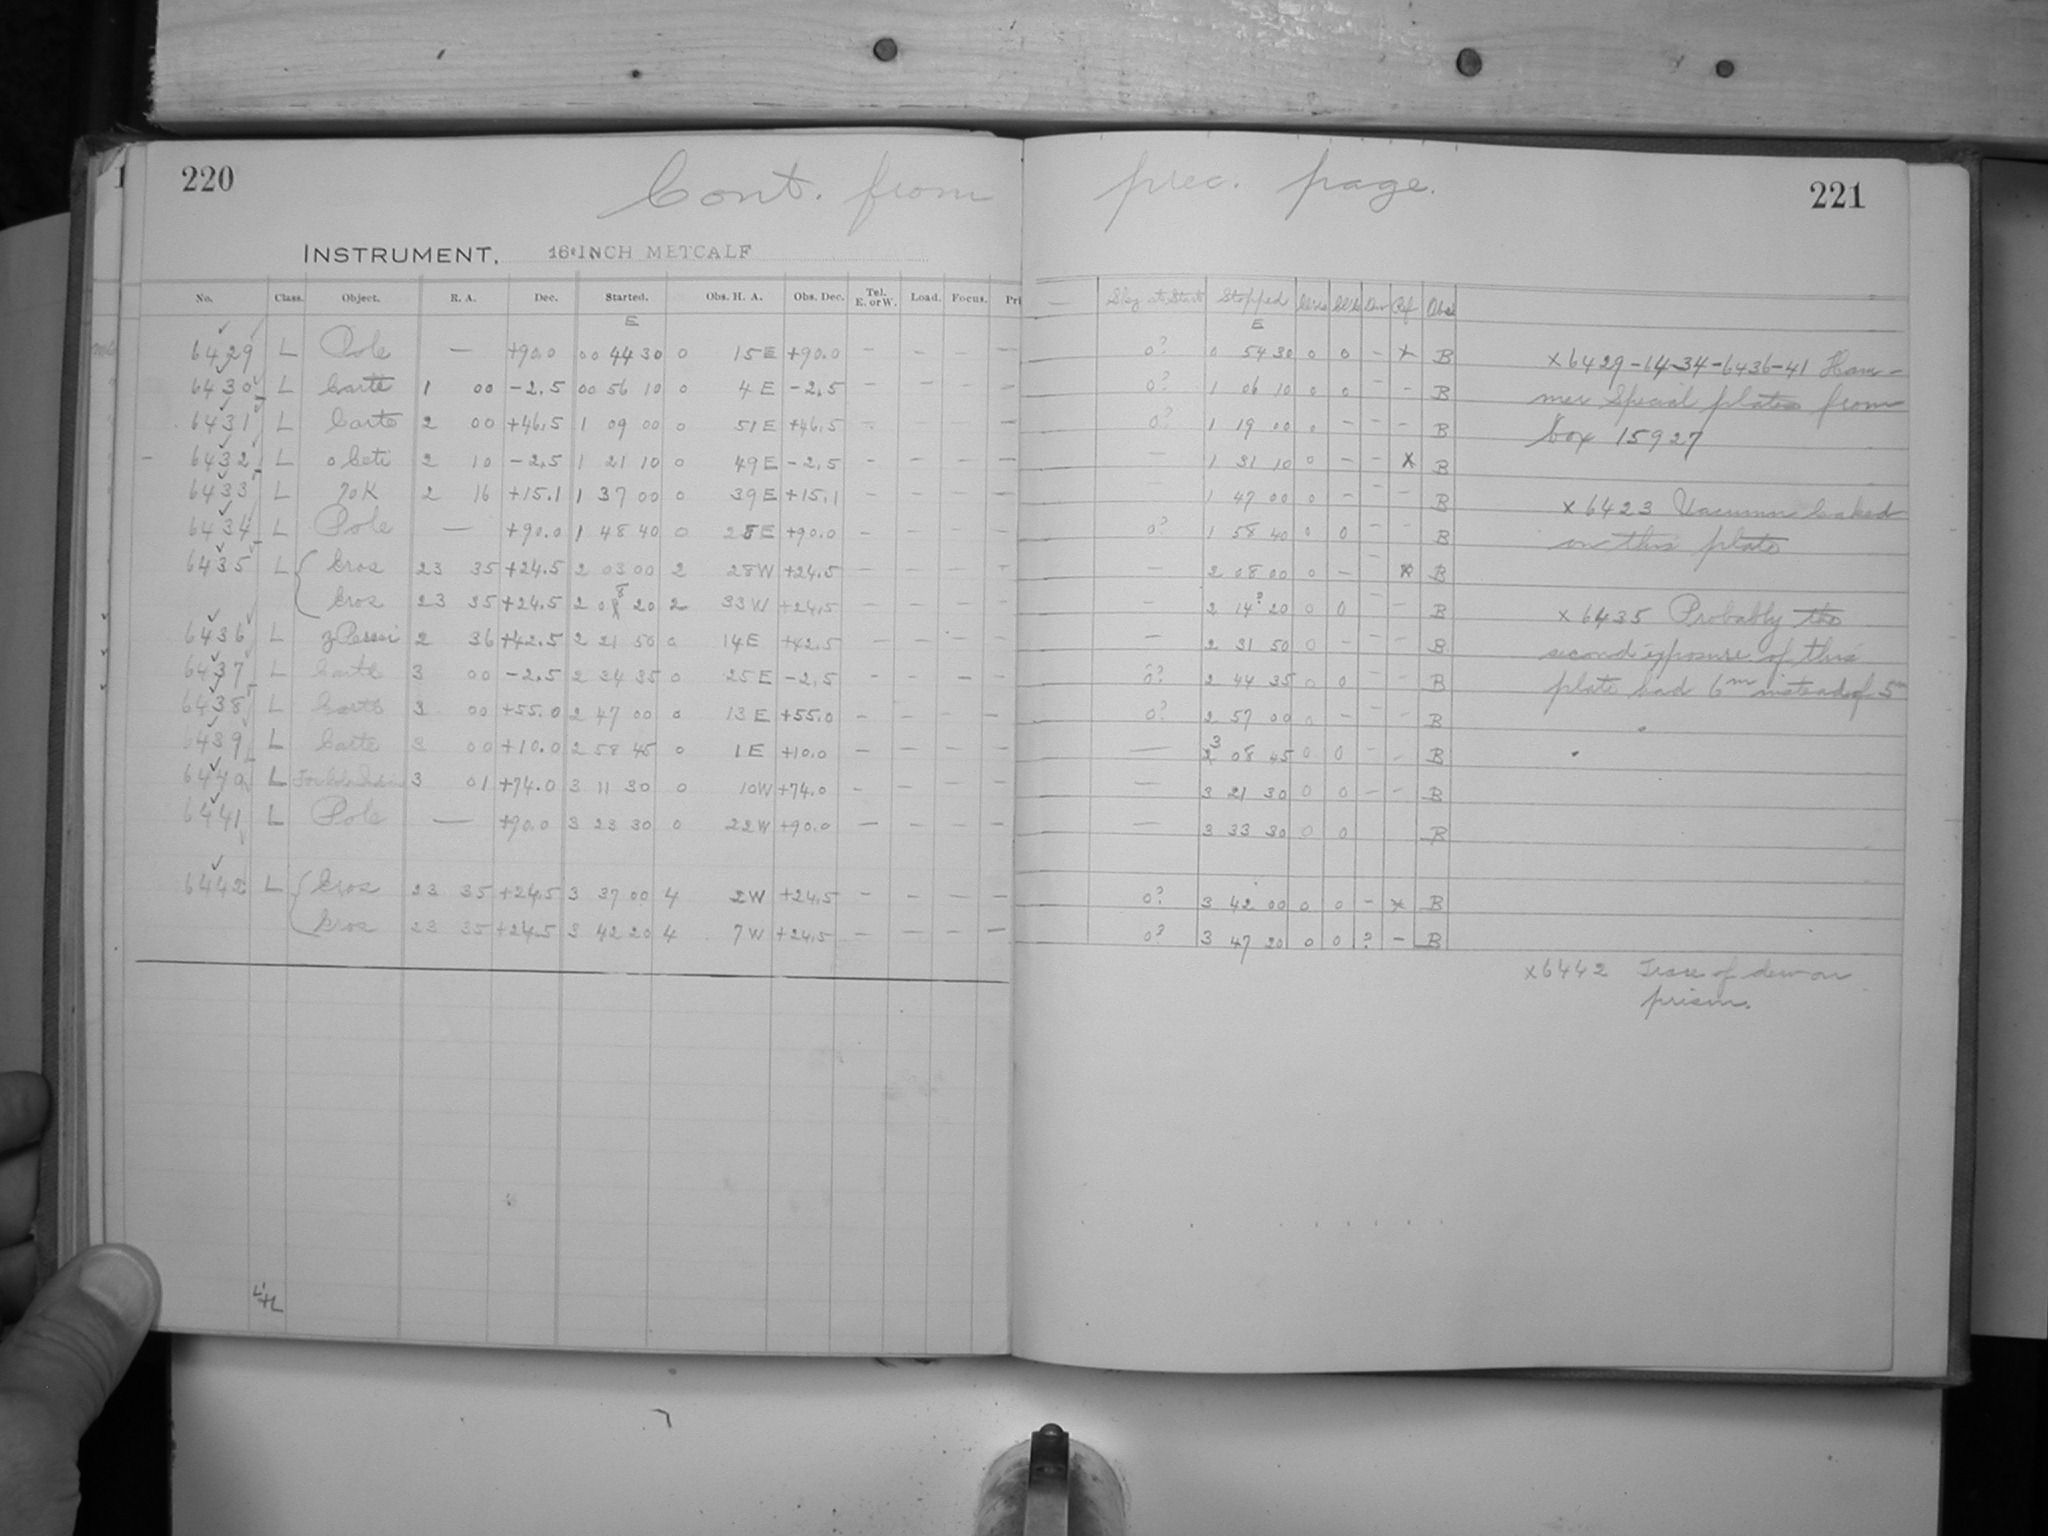 220
Cont. from prec. page.
221
INSTRUMENT, 16-INCH METCALF
No. Class. Object. R. A. Dec. Started. Obs. H. A. Obs. Dec. Tel. E. or W. Load. Focus. Pri Sky at Start Stopped Ref Obs
E E
6429 L Pole — +90.0 00 44 30 0 15 E +90.0 — — — — 0? 0 54 30 0 0 — x B
6430 L Carte 1 00 -2.5 00 56 10 0 4 E -2.5 — — — — 0? 1 06 10 0 0 — — B
6431 L Carte 2 00 +46.5 1 09 00 0 51 E +46.5 — — — — 0? 1 19 00 0 — — — B
6432 L o Ceti 2 10 -2.5 1 21 10 0 49 E -2.5 — — — — — 1 31 10 0 — — x B
6433 L 70K 2 16 +15.1 1 37 00 0 39 E +15.1 — — — — — 1 47 00 0 — — — B
6434 L Pole — +90.0 1 48 40 0 28 E +90.0 — — — — 0? 1 58 40 0 0 — — B
6435 L Eros 23 35 +24.5 2 03 00 2 28 W +24.5 — — — — — 2 08 00 0 — — x B
Eros 23 35 +24.5 2 08 20 2 33 W +24.5 — — — — — 2 14? 20 0 0 — — B
6436 L 2 36 +42.5 2 21 50 0 14 E +42.5 — — — — — 2 31 50 0 — — — B
6437 L Carte 3 00 -2.5 2 34 35 0 25 E -2.5 — — — — 0? 2 44 35 0 0 — — B
6438 L Carte 3 00 +55.0 2 47 00 0 13 E +55.0 — — — — 0? 2 57 00 0 — — — B
6439 L Carte 3 00 +10.0 2 58 45 0 1 E +10.0 — — — — — 3 08 45 0 0 — — B
6440 L 3 01 +74.0 3 11 30 0 10 W +74.0 — — — — — 3 21 30 0 0 — — B
6441 L Pole — +90.0 3 23 30 0 22 W +90.0 — — — — — 3 33 30 0 0 B
6442 L Eros 23 35 +24.5 3 37 00 4 2 W +24.5 — — — — 0? 3 42 00 0 0 — x B
Eros 23 35 +24.5 3 42 20 4 7 W +24.5 — — — — 0? 3 47 20 0 0 ? — B
x 6429-14-34-6436-41 Ham-
mer Special plates from
box 15927
x 6423 Vacuum leaked
on this plate
x 6435 Probably the
second exposure of this
plate had 6m instead of 5m
x 6442 Trace of dew on
prism.